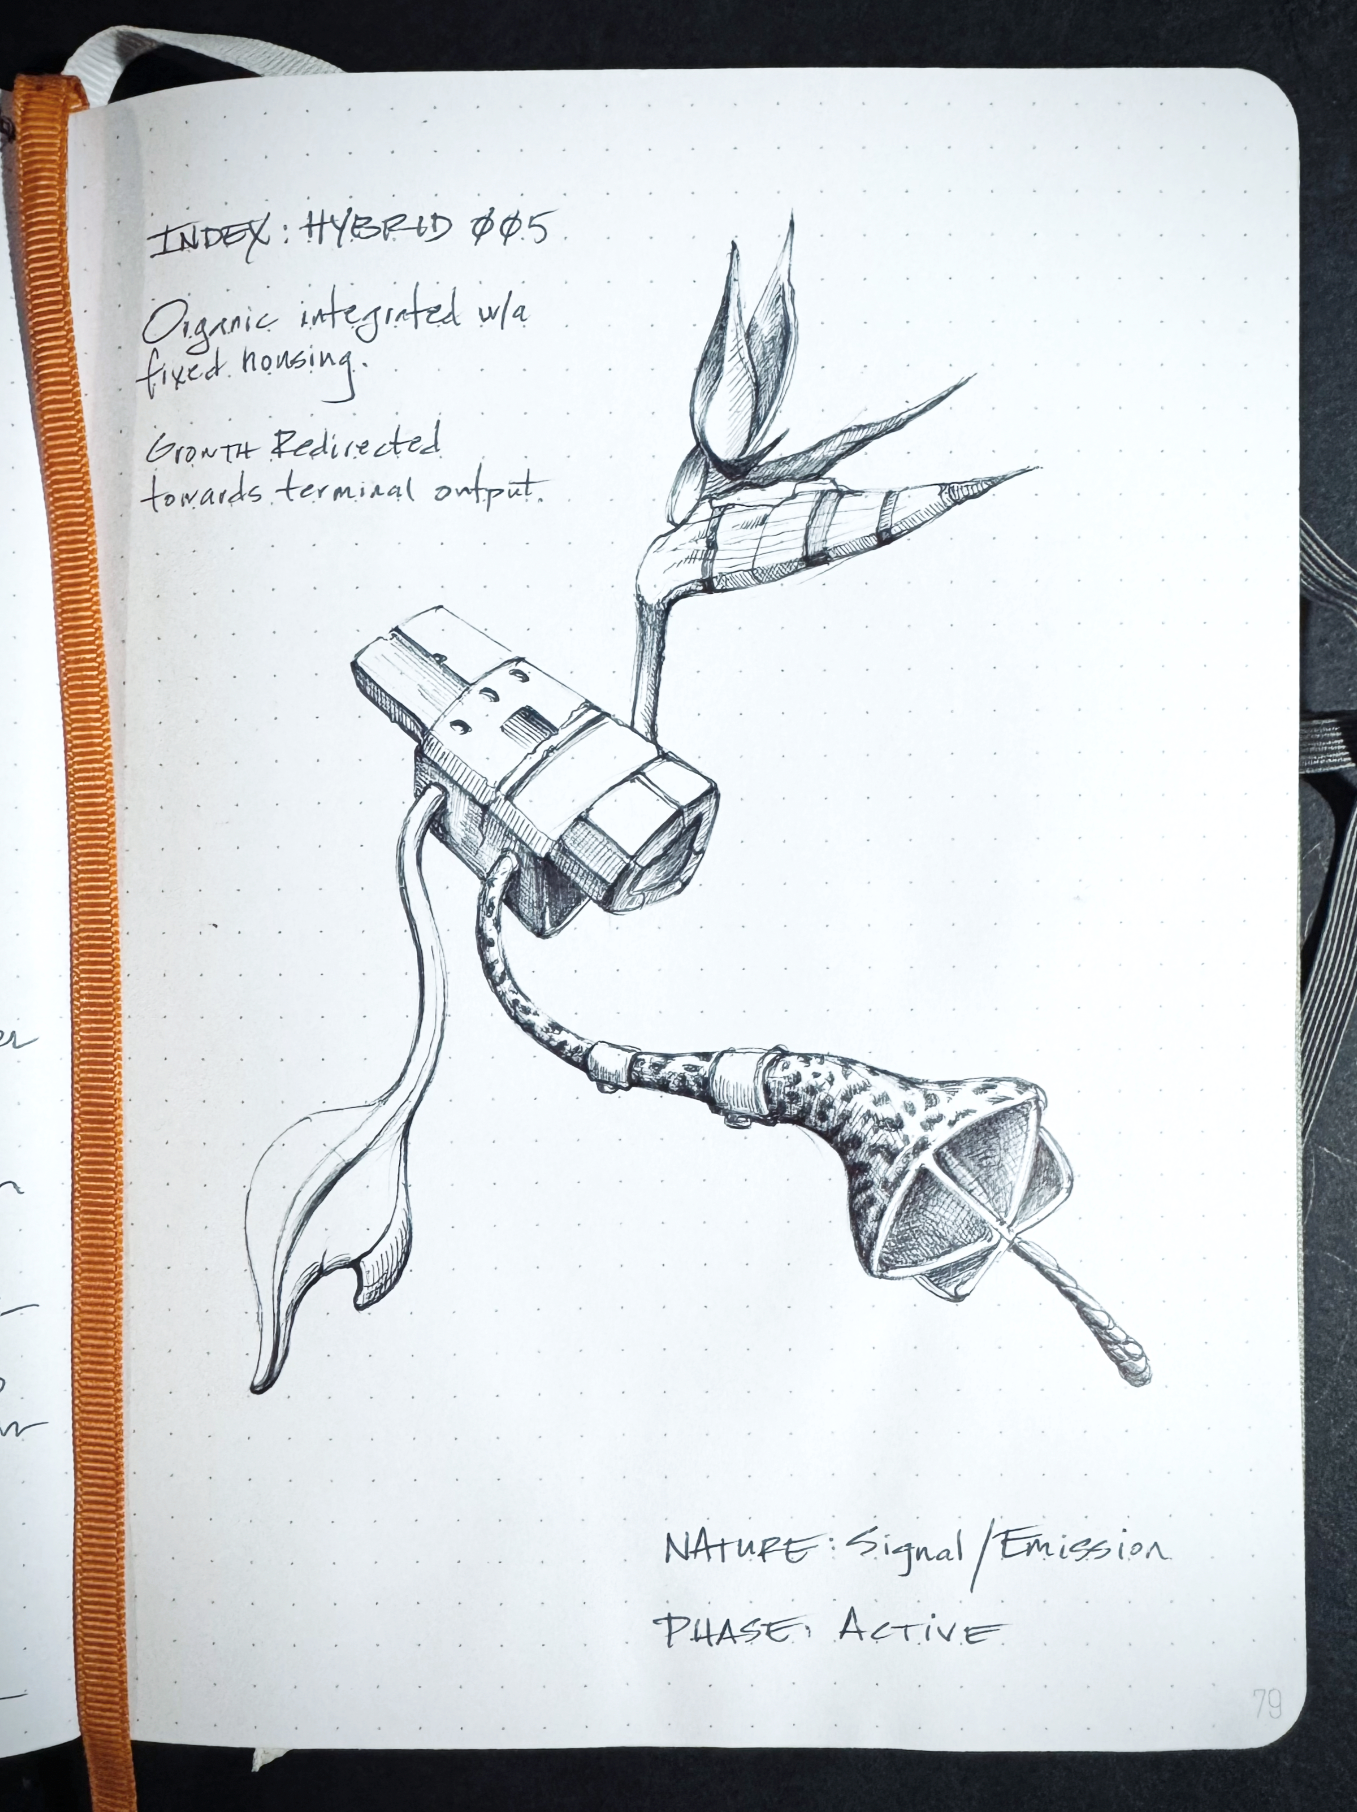 INDEX: HYBRID ØØ5
Organic integrated w/a
fixed housing.
Growth Redirected
towards terminal output.
NATURE: Signal/Emission
PHASE: ACTiVE
79